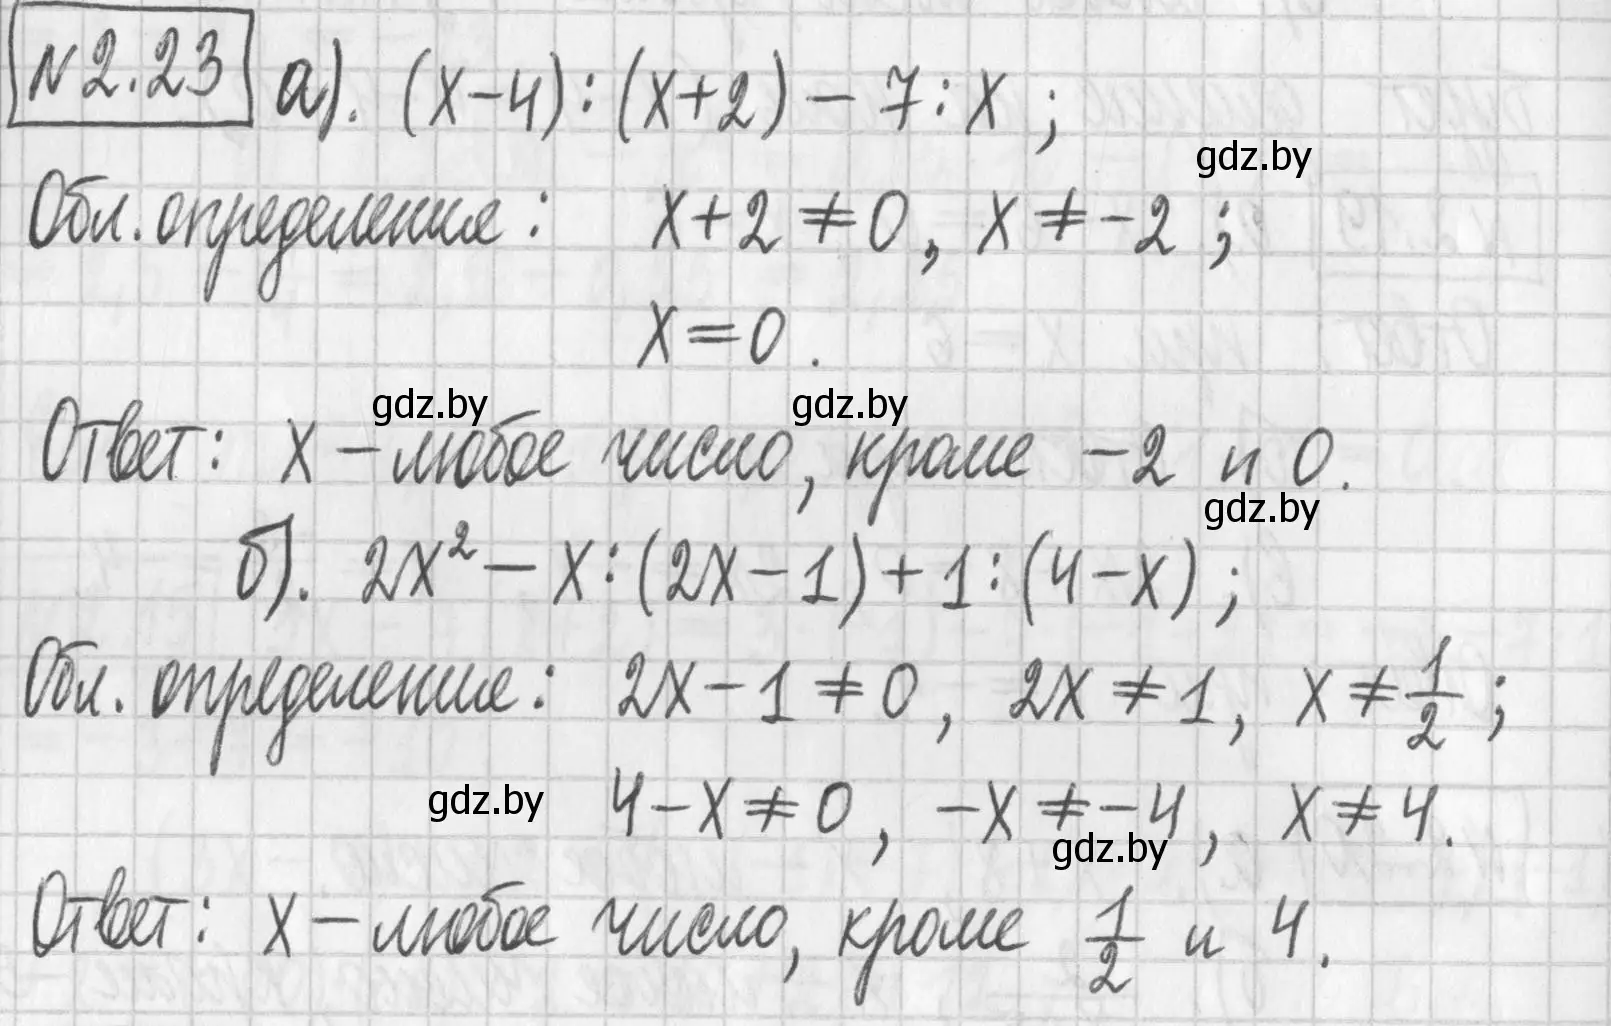 №2.23 а). (x-4):(x+2) - 7:x ;
gdz.by
Обл. определения: x+2≠0, x≠-2 ;
x=0.
gdz.by gdz.by
Ответ: x – любое число, кроме -2 и 0.
gdz.by
б). 2x² - x:(2x-1) + 1:(4-x) ;
Обл. определения: 2x-1≠0, 2x≠1, x≠1/2 ;
gdz.by 4-x≠0, -x≠-4, x≠4.
gdz.by
Ответ: x – любое число, кроме 1/2 и 4.